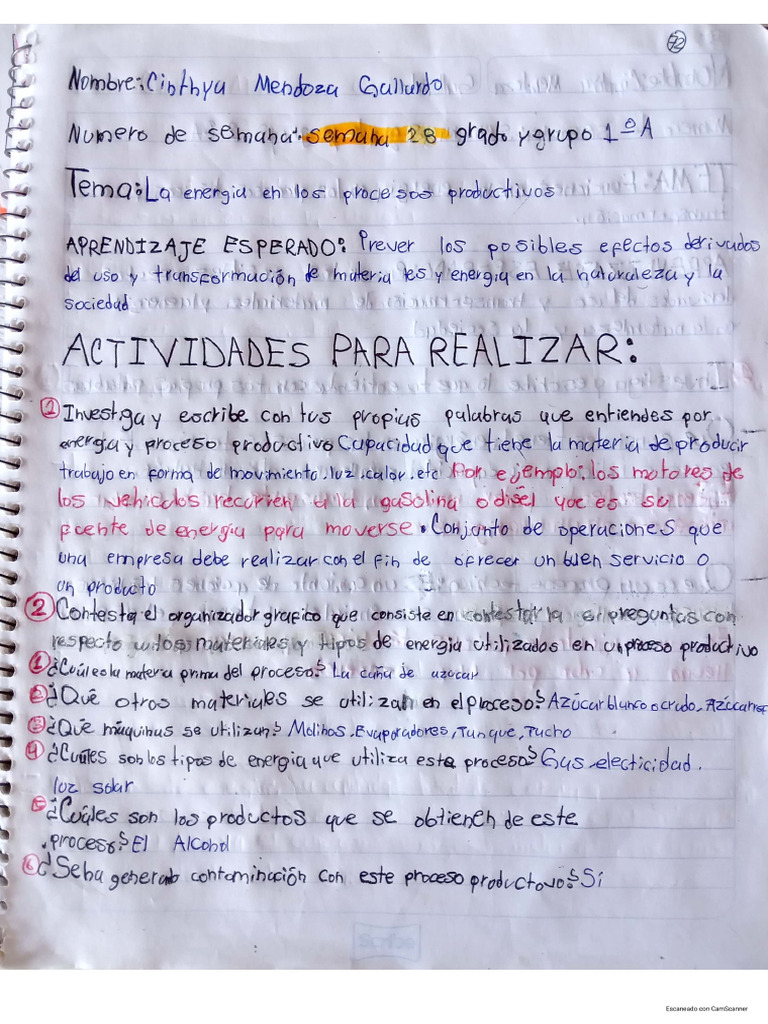 72
Nombre: Cinthya Mendoza Gallardo
Numero de semana: semana 28 grado y grupo 1ºA
Tema: La energia en los procesos productivos
APRENDIZAJE ESPERADO: Prever los posibles efectos derivados
del uso y transformación de materiales y energia en la naturaleza y la
sociedad
ACTIVIDADES PARA REALIZAR:
1 Investiga y escribe con tus propias palabras que entiendes por
energia y proceso productivo Capacidad que tiene la materia de producir
trabajo en forma de movimiento, luz, calor, etc Por ejemplo: los motores de
los vehiculos recurren a la gasolina o disel que es su
fuente de energia para moverse. Conjunto de operaciones que
una empresa debe realizar con el fin de ofrecer un buen servicio o
un producto
2 Contesta el organizador grafico que consiste en contestar la si preguntas con
respecto a los materiales y tipos de energia utilizados en un proceso productivo
1 ¿Cuál es la materia prima del proceso? La caña de azucar
2 ¿Qué otros materiales se utilizan en el proceso? Azúcar blanco o crudo, Azúcar
3 ¿Qué maquinas se utilizan? Molinos, Evaporadores, Tanque, Tacho
4 ¿Cuáles son los tipos de energia que utiliza este proceso? Gas, electicidad,
luz solar
5 ¿Cuáles son los productos que se obtienen de este
proceso? El Alcohol
6 ¿Se ha generado contaminación con este proceso productovo? Sí
Escaneado con CamScanner